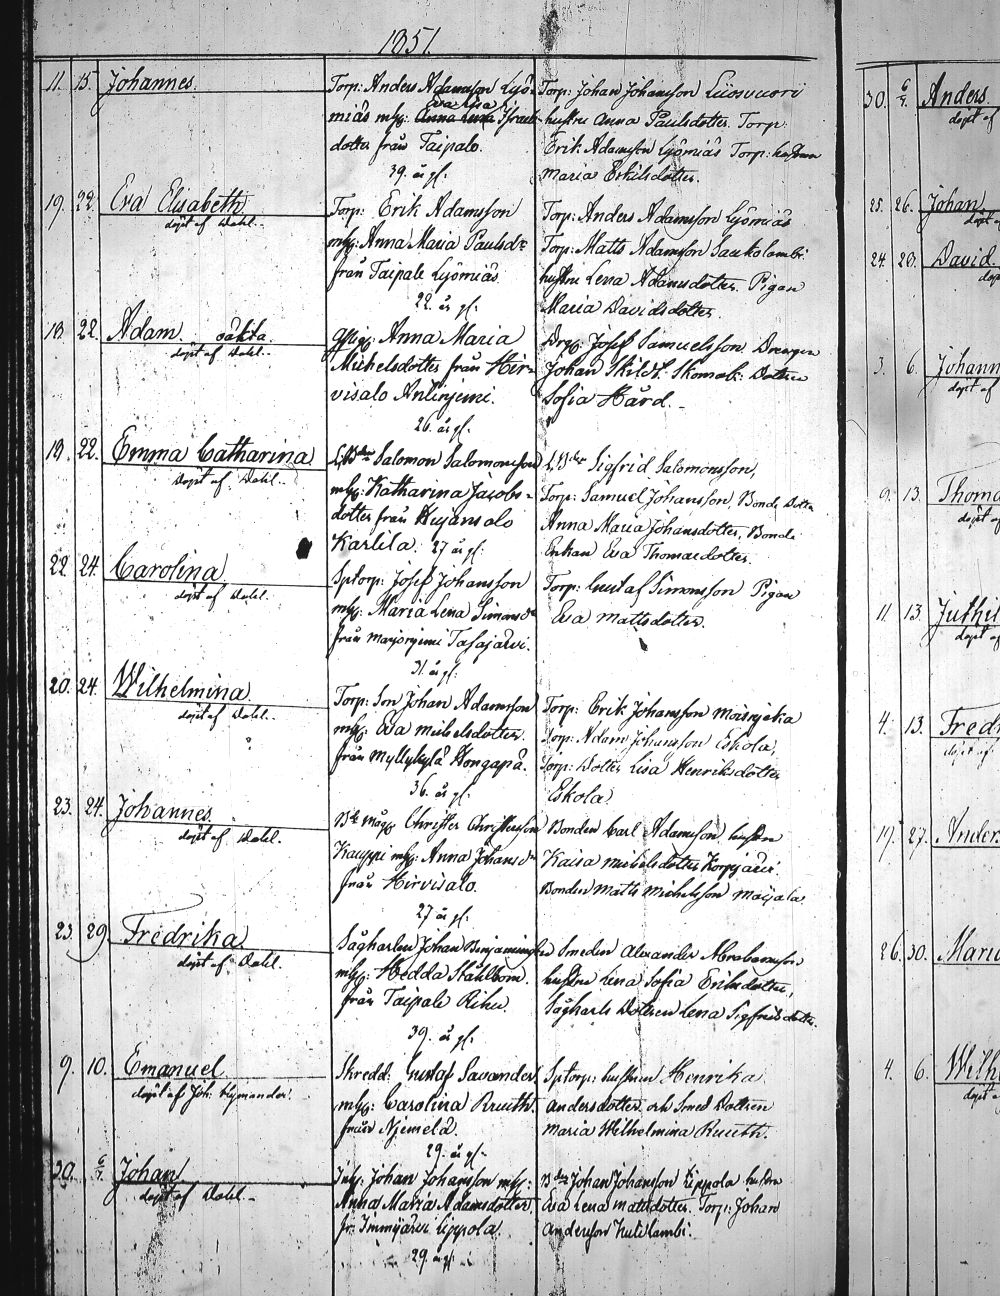 1851.
11. 15. Johannes.
Torp: Anders Adamsson Lyö-
Eva Lisa
miäs mhu: Anna Lena Israels-
dotter från Taipale.
39. år gl.
Torp: Johan Johansson Liiosuuori
hustru Anna Paulsdotter Torp:
Erik Adamsson Lyömiäs Torp: hustrun
Maria Eskilsdotter.
19. 22. Eva Elisabeth
döpt af Dahl.
Torp: Erik Adamsson
mhu: Anna Maria Paulsdr
från Taipale Lyömiäs.
22. år gl.
Torp: Anders Adamsson Lyömiäs
Torp: Matts Adamsson Saukolambi
hustru Lena Adamsdotter. Pigan
Maria Davidsdotter
18 22. Adam. oäkta.
döpt af Dahl.
Anna Maria
Michelsdotter från Hir-
visalo Anlinjemi.
26. år gl.
Drg: Josef Samuelsson Drengen
Johan Skildt. Skomak: Dottren
Sofia Hård.
19. 22. Emma Catharina
Döpt af Dahl.
Salomon Salomonsson
mhu: Katharina Jacobs-
dotter från Kujansalo
Karlila. 27 år gl.
Sigfrid Salomonsson,
Torp: Samuel Johansson, Bonde Dottr
Anna Maria Johansdotter, Bonde
Enkan Eva Thomasdotter.
22. 24. Carolina
döpt af Dahl.
Sptorp: Josef Johansson
mhu: Maria Lena Simonsdr
från Marjonjemi Tasajärvi.
31. år gl.
Torp: Gustaf Simonsson Pigan
Eva Mattsdotter.
20. 24. Wilhelmina.
döpt af Dahl.
Torp: Son Johan Adamsson
mhu: Eva Michelsdotter
från Myllykylä Hongapä.
36. år gl.
Torp: Erik Johansson Moisnjeka
Torp: Adam Johansson Eskola,
Torp: Dotter Lisa Henriksdotter
Eskola
23. 24. Johannes.
döpt af Dahl.
Bde måg Christer Christersson
Kauppi mhu: Anna Johansdr
från Hirvisalo.
27 år gl.
Bonden Carl Adamsson hustru
Kaisa Michelsdotter Korpjärvi.
Bonden Matts Michelsson Maijala
23. 29. Fredrika
döpt af Dahl.
Sågkarlen Johan Benjaminsson
mhu: Hedda Ståhlbom.
från Taipale Rihu.
39. år gl.
Smeden Alexander Abrahamsson
hustru Lena Sofia Eriksdotter,
Sågkarls Dottren Lena Sigfridsdotter.
9. 10. Emanuel
döpt af Joh: Hymander.
Skredd: Gustaf Savander
mhu: Carolina Ruuth.
från Njemelä.
29. år gl.
Sptorp: hustrun Henrika
Andersdotter och Smed Dottren
Maria Wilhelmina Ruuth.
30. 6/7. Johan
döpt af Dahl.
Inh: Johan Johansson mhu:
Anna Maria Adamsdotter
fr. Immjärvi Eippola.
29. år gl.
Bden Johan Johansson Eippola hustru
Eva Lena Mattsdotter. Torp: Johan
Andersson Huttlambi.
30. 6/7. Anders.
döpt af
25. 26. Johan
döpt af
24. 29. David.
döpt
3. 6. Johann
döpt af
9. 13. Thoma
döpt af
11 13. Juthil
döpt af
4. 13. Fredr
döpt af
19. 27. Anders
26. 30. Maria
4. 6. Wilh
döpt a